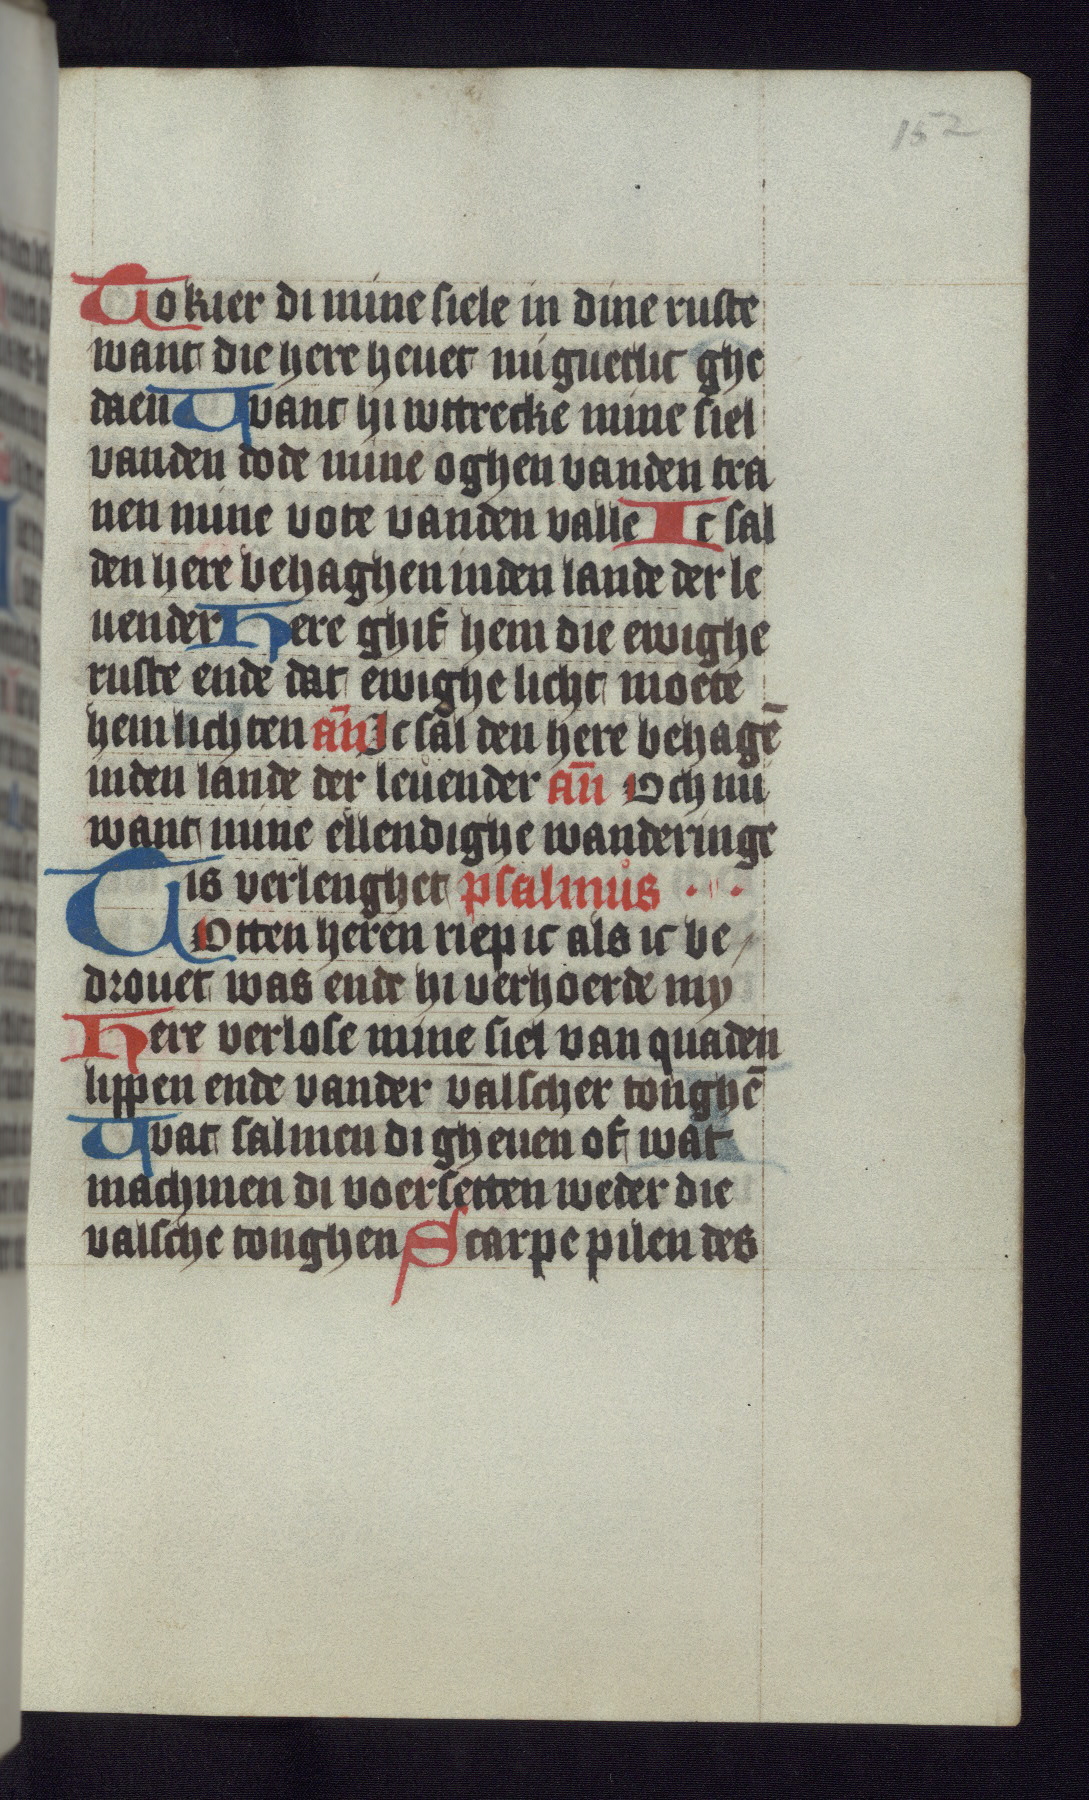 152
To kier di mine siele in dine ruste
want die here heuet mi guetlic ghe
daen Want hi wttrecke mine siel
vanden dode mine oghen vanden tra
nen mine vote vanden valle Ic sal
den here behaghen inden lande der le
uender Here ghif hem die ewighe
ruste ende dat ewighe licht moete
hem lichten an̄ Ic sal den here behagē
inden lande der leuender an̄ Och mi
want mine ellendighe wanderinge
is verlenghet psalmus
Totten heren riep ic als ic be
drouet was ende hi verhoerde my
Here verlose mine siel van quaden
lippen ende vander valscher tonghē
Wat salmen di gheuen of wat
machmen di voersetten weder die
valsche tonghen Scarpe pilen des